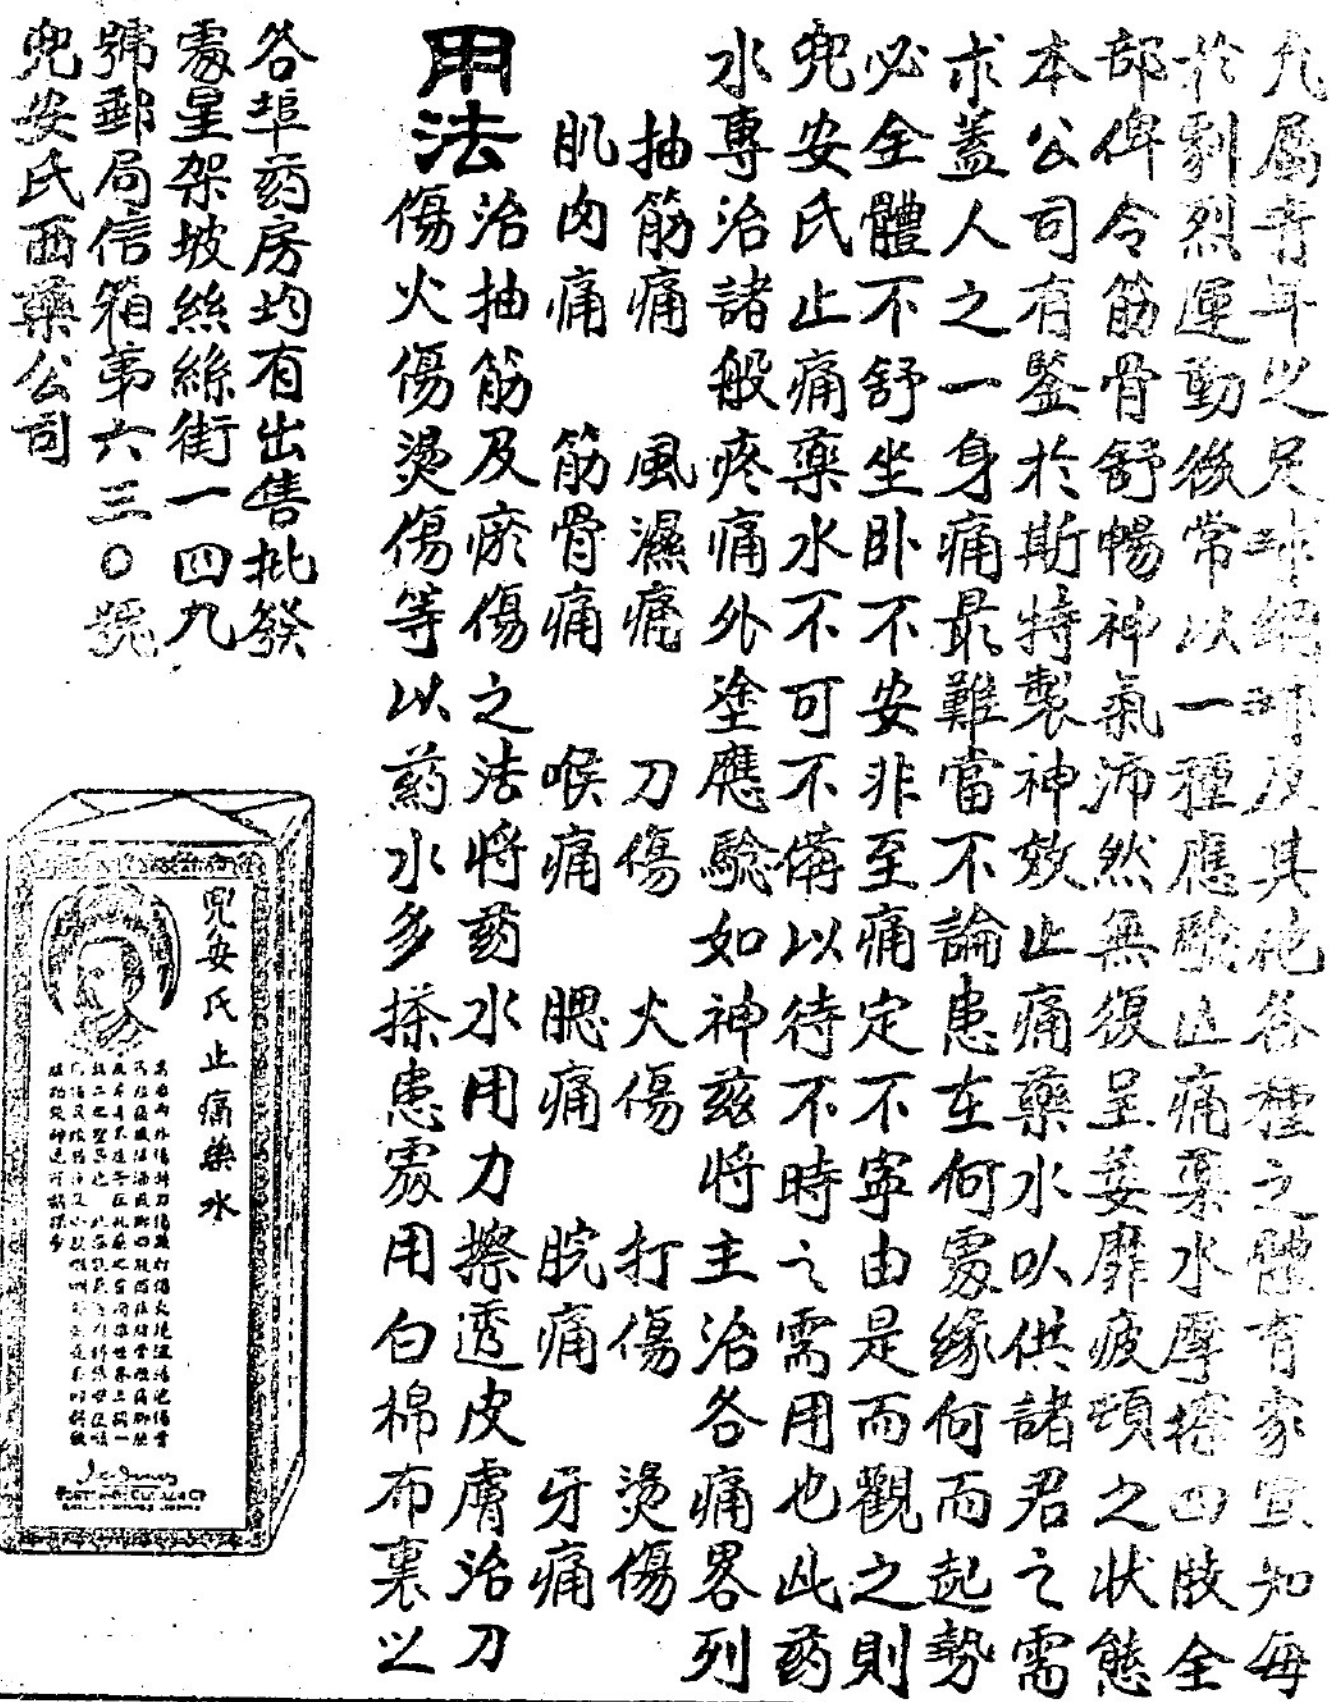 凡屬青年之足球網球及其他各種之體育家宜知每
於剝烈運動後常以一種應驗止痛藥水摩擦四肢全
部俾令筋骨舒暢神氣沛然無復呈萎靡疲頓之狀態
本公司有鑒於斯特製神效止痛藥水以供諸君之需
求蓋人之一身痛最難當不論患在何處緣何而起勢
必全體不舒坐卧不安非至痛定不寧由是而觀之則
兜安氏止痛藥水不可不備以待不時之需用也此药
水專治諸般疼痛外塗應驗如神茲將主治各痛畧列
抽筋痛 風濕痛 刀傷 火傷 打傷 燙傷
肌肉痛 筋骨痛 喉痛 腮痛 脘痛 牙痛
用法
治抽筋及瘀傷之法将药水用力擦透皮膚治刀
傷火傷燙傷等以葯水多搽患處用白棉布裹之
各埠葯房均有出售批發
處星架坡絲絲街一四九
號郵局信箱第六三〇號
兜安氏西藥公司
兜安氏止痛藥水